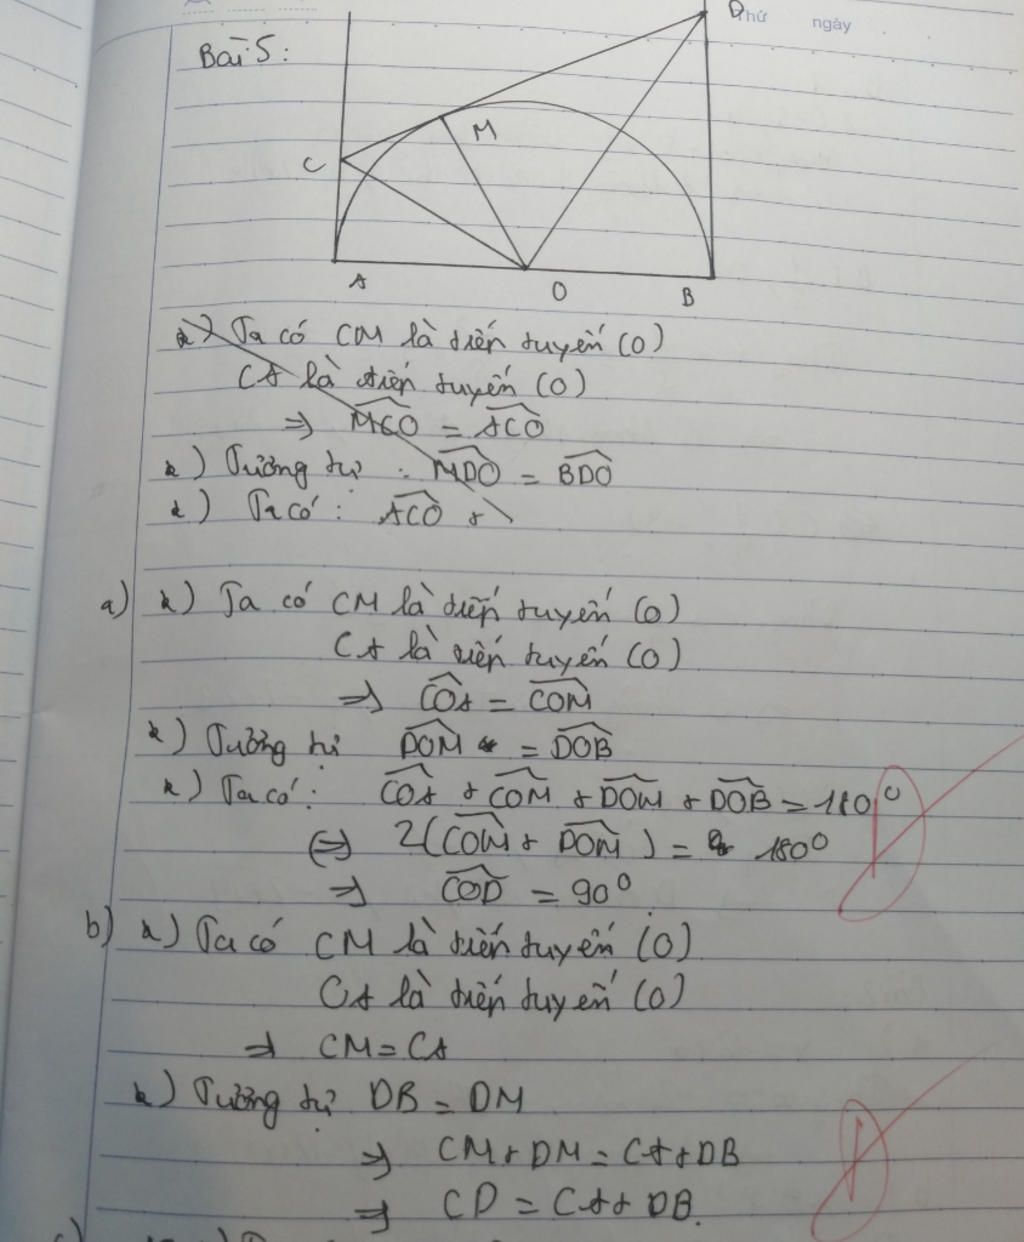 Thứ ngày
Bài 5:
D
M
C
A O B
*) Ta có CM là tiến tuyến (O)
CA là tiến tuyến (O)
⇒ MCO = ACO
*) Tương tự : MDO = BDO
*) Ta có : ACO +
a) *) Ta có CM là tiến tuyến (O)
CA là tiến tuyến (O)
⇒ COA = COM
*) Tương tự DOM = DOB
*) Ta có : COA + COM + DOM + DOB = 180°
⇔ 2(COM + DOM) = 180°
⇒ COD = 90°
b) *) Ta có CM là tiến tuyến (O)
CA là tiến tuyến (O)
⇒ CM = CA
*) Tương tự DB = DM
⇒ CM + DM = CA + DB
⇒ CD = CA + DB.